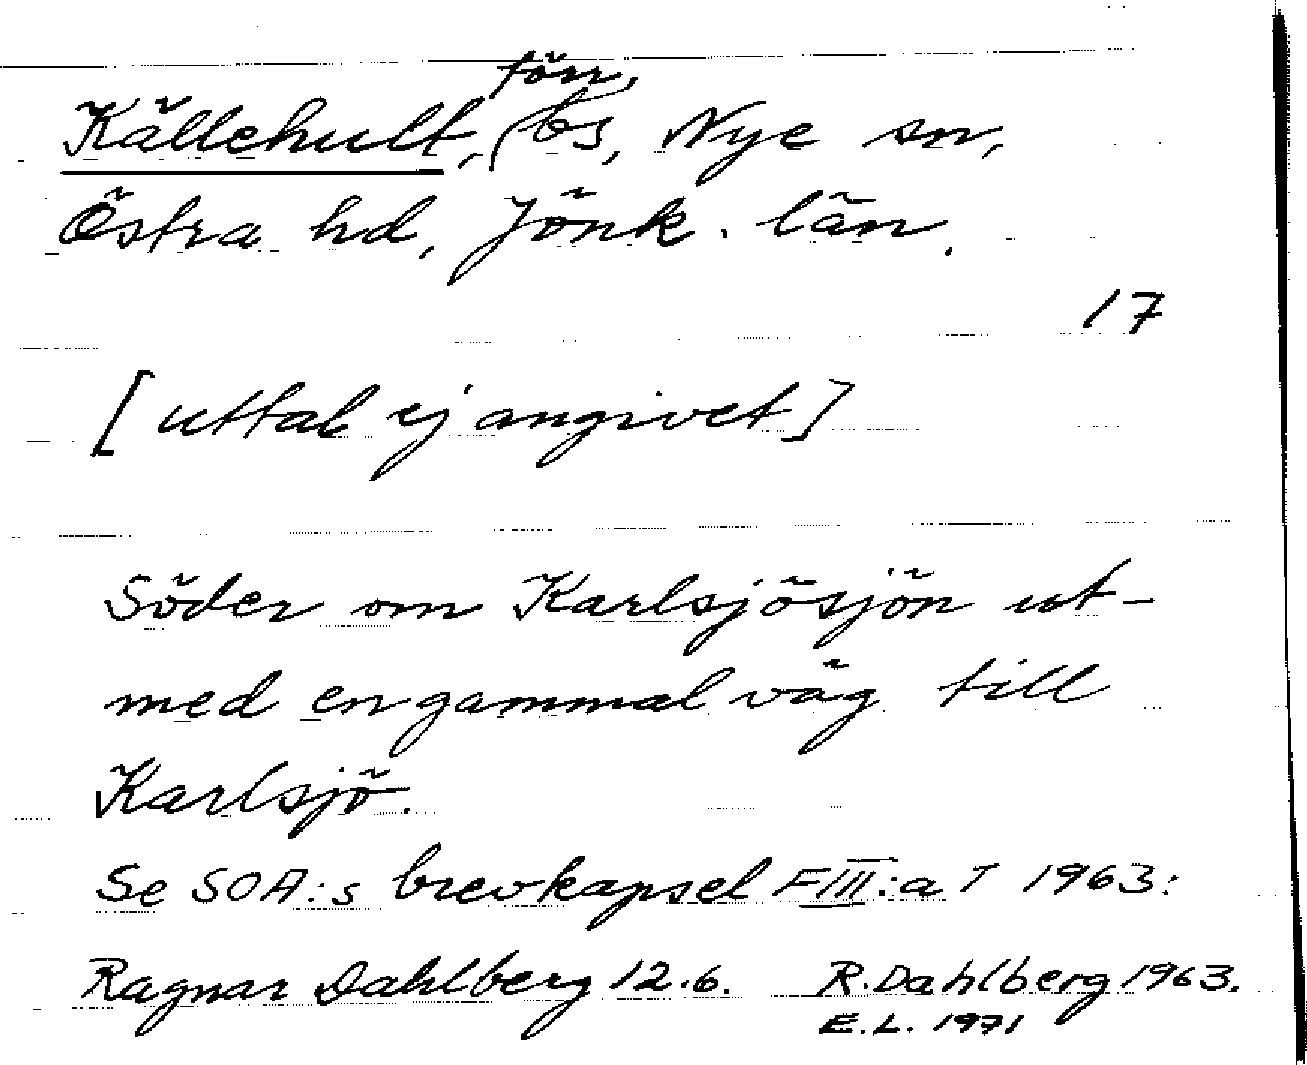 Källehult, förr, bs, Nye sn,
Östra hd, Jönk. län.
17
[uttal ej angivet]
Söder om Karlsjösjön ut-
med en gammal väg till
Karlsjö.
Se SOA:s brevkapsel FIII:a 1963:
Ragnar Dahlberg 12.6. R. Dahlberg 1963.
E.L. 1971